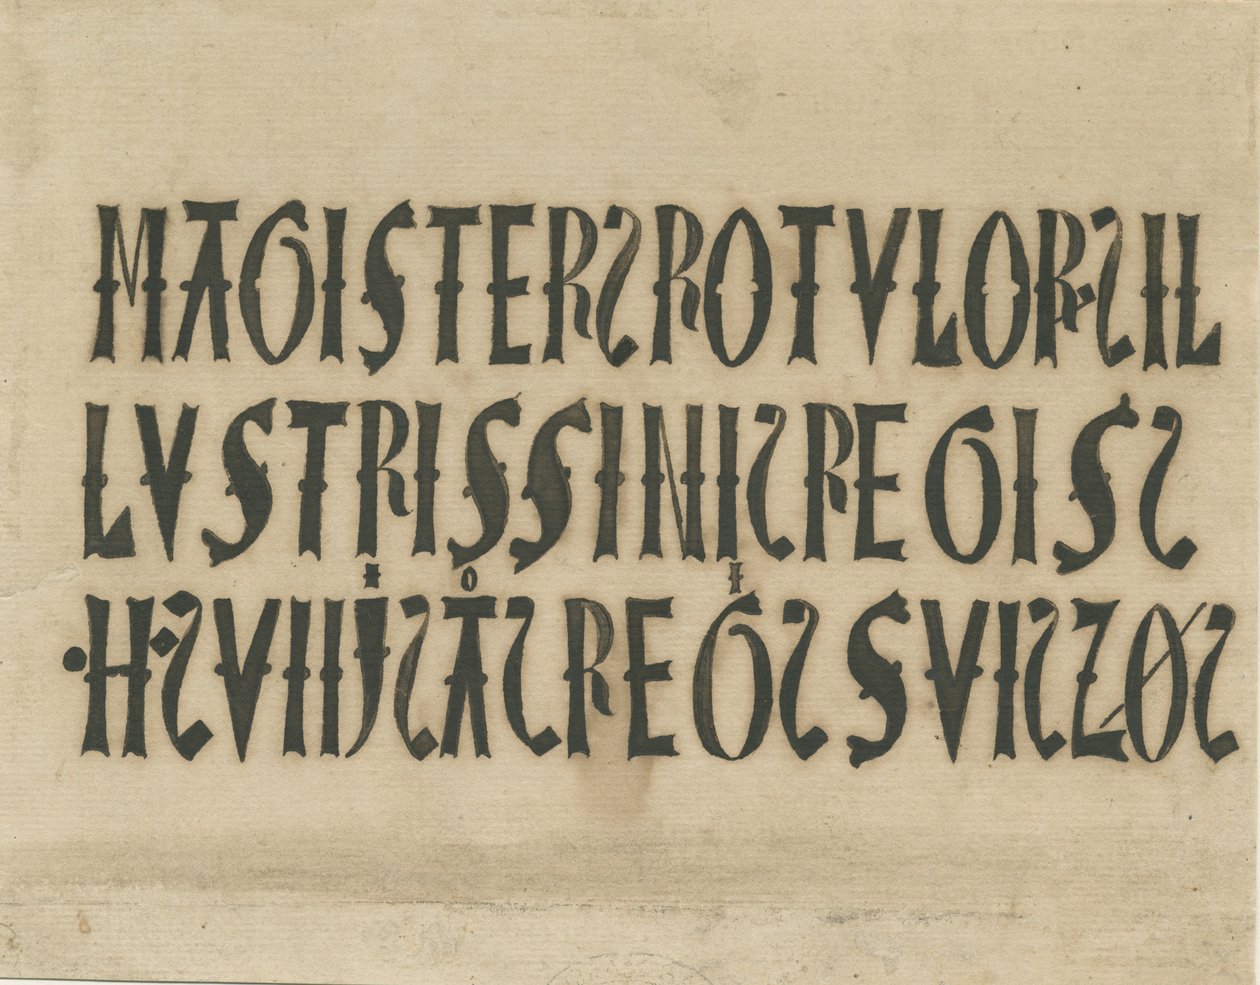 MAGISTER ROTVLOR IL
LVSTRISSINI REGIS
·H· VIIJⁱ Aº REGⁱ SVI Z0